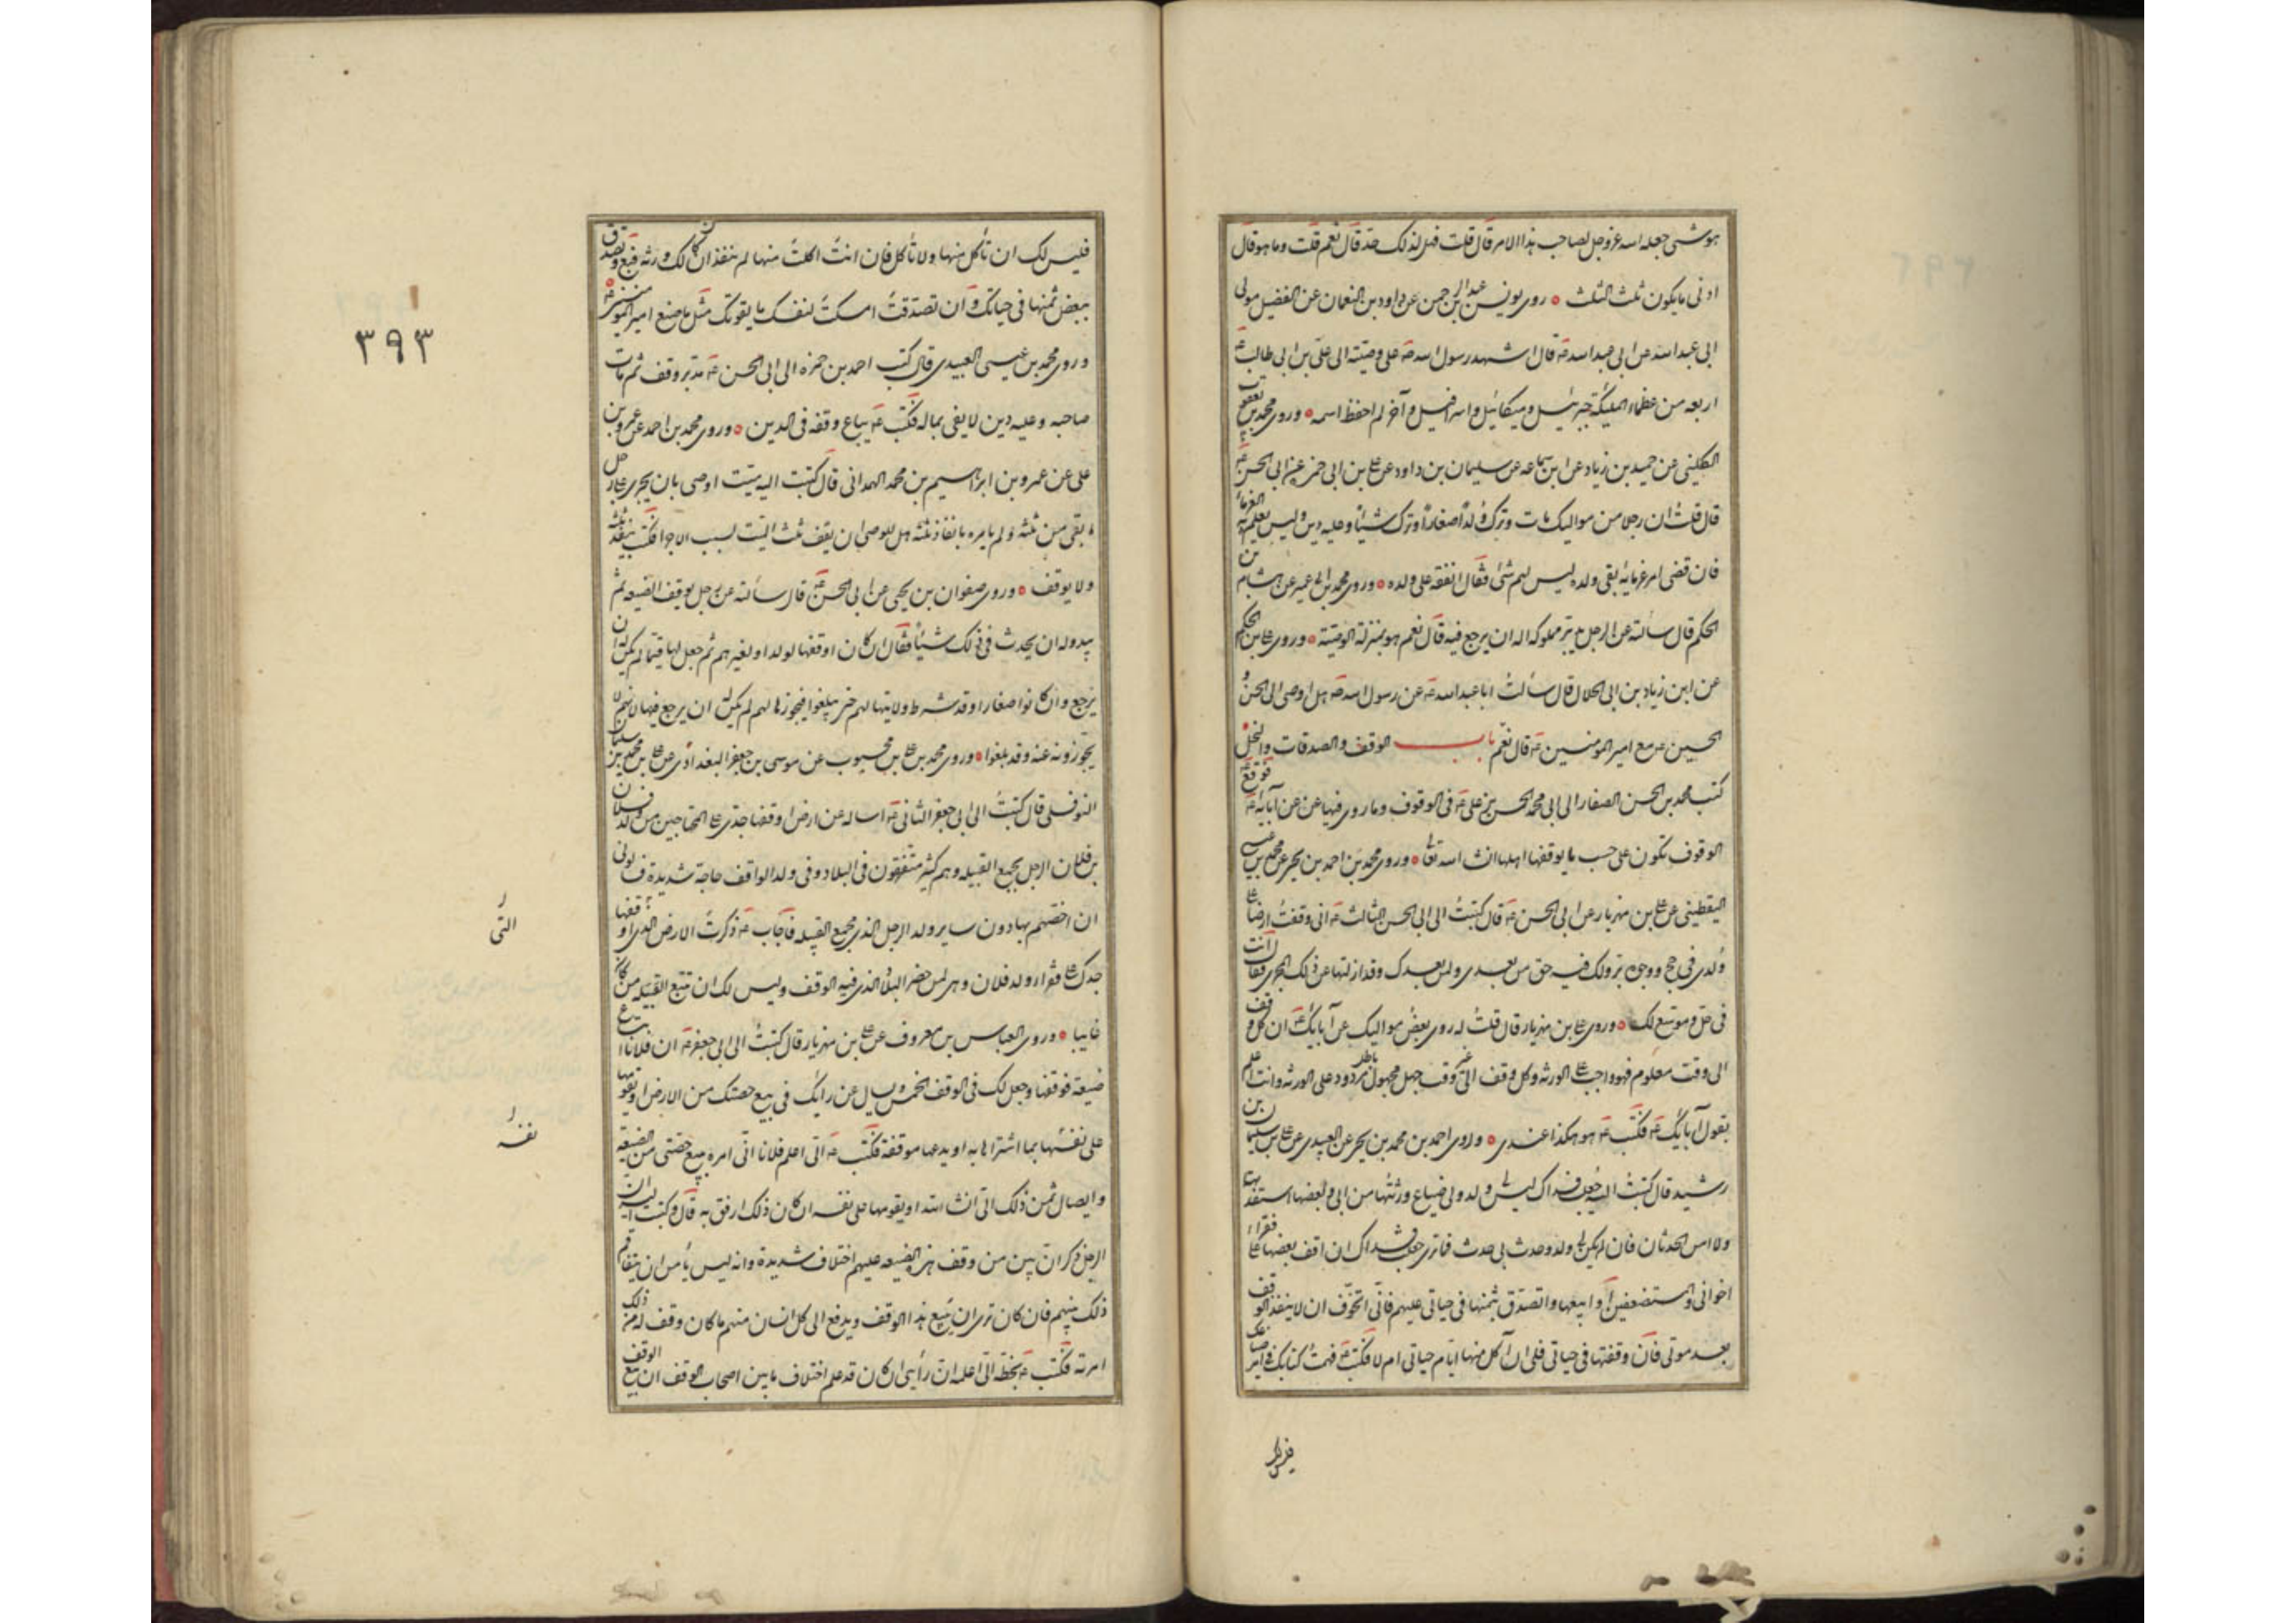 هو شئ جعله الله عز وجل لصاحب هذا الامر قال قلت فهل لذلك حد قال نعم قلت وما هو قال
ادنى ما يكون ثلث الثلث ه روى يونس بن عبد الرحمن عن داود بن النعمان عن الفضيل مولى
ابى عبد الله عن ابى عبد الله ع قال اشهد رسول الله ص على وصيته الى على بن ابى طالب ع
اربعه من عظماء الملئكة جبرئيل وميكائيل واسرافيل وآخر لم احفظ اسمه ه وروى محمد بن يعقوب
الكلينى عن حميد بن زياد عن ابن سماعه عن سليمان بن داود عن على بن ابى حمزه عن ابى الحسن ع
قال قلت ان رجلا من مواليك مات وترك ولدا صغارا وترك شيئا وعليه دين وليس يعلم به الغرماء
فان قضى لغرمائه بقى ولده ليس لهم شئ فقال انفقه على ولده ه وروى محمد بن ابى عمير عن هشام بن
الحكم قال سألته عن الرجل يدبر مملوكه اله ان يرجع فيه قال نعم هو بمنزلة الوصية ه وروى على بن الحكم
عن ابن زياد بن ابى الحلال قال سألت ابا عبد الله ع عن رسول الله ص هل اوصى الى الحسن و
الحسين ع مع امير المومنين ع قال نعم باب الوقف والصدقات والنحل
كتب محمد بن الحسن الصفار الى ابى محمد الحسن بن على ع فى الوقوف وما روى فيها عن عن آبائه ع فوقع ع
الوقوف تكون على حسب ما يوقفها اهلها انشا الله تعالى ه وروى محمد بن احمد بن يحيى عن محمد بن عيسى
اليقطينى عن على بن مهزيار عن ابى الحسن ع قال كتبت الى ابى الحسن الثالث ع انى وقفت ارضا على
ولدى فى حج ووجوه بر ولك فيه حق من بعدى ولمن بعدك وقد ازلتها عن ذلك المجرى فقال انت
فى حل وموسع لك ه وروى على بن مهزيار قال قلت له روى بعض مواليك عن آبائك ع ان كل وقف
الى وقت معلوم فهو واجب على الورثه وكل وقف الى غير وقت جهل مجهول باطل مردود على الورثه وانت اعلم
بقول آبائك ع فكتب ع هو هكذا عندى ه وروى احمد بن محمد بن يحيى عن العبيدى عن على بن سليمان بن
رشيد قال كتبت اليه جعلت فداك ليس لى ولد ولى ضياع ورثتها من ابى وبعضها استفدتها
ولا امن الحدثان فان لم يكن لى ولد وحدث بى حدث فما ترى جعلت فداك ان اقف بعضها على فقراء
اخوانى والمستضعفين او ابيعها واتصدق بثمنها فى حياتى عليهم فانى اتخوف ان لا ينفذ الوقف
بعد موتى فان وقفتها فى حياتى فلى ان آكل منها ايام حياتى ام لا فكتب ع فهمت كتابك فى امر ضياعك
فليس لك
فليس لك ان تأكل منها ولا تأكل فان انت اكلت منها لم ينفذ ان كان لك ورثه فبع وتصدق
ببعض ثمنها فى حياتك وان تصدقت امسكت لنفسك ما يقوتك مثل ما صنع امير المومنين ع
وروى محمد بن عيسى العبيدى قال كتب احمد بن حمزه الى ابى الحسن ع مدبر وقف ثم مات
صاحبه وعليه دين لا يفى بماله فكتب ع يباع وقفه فى الدين ه وروى محمد بن احمد عن عمرو بن
على عن عمرو بن ابراهيم بن محمد الهمدانى قال كتبت اليه ميت اوصى بان يجرى على رجل
ما بقى من ثلثه ولم يامره بانفاذ ثلثه هل للوصى ان يقف ثلث الميت لسبب الاجرا فكتب ينفذ ثلثه
ولا يوقف ه وروى صفوان بن يحيى عن ابى الحسن ع قال سألته عن رجل يوقف الضيعه ثم
يبدو له ان يحدث فى ذلك شيئا فقال ان كان اوقفها لولد او لغيرهم ثم جعل لها قيما لم يكن له ان
يرجع وان كانوا صغارا وقد شرط ولايتها لهم حتى يبلغوا فيحوزها لهم لم يكن له ان يرجع فيها لانهم لا
يحوزونه عنه وقد بلغوا ه وروى محمد بن على بن محبوب عن موسى بن جعفر البغدادى عن على بن محمد بن سليمان
النوفلى قال كتبت الى ابى جعفر الثانى ع اساله عن ارض اوقفها جدى على المحتاجين من ولد فلان
بن فلان الرجل يجمع القبيله وهم كثير متفرقون فى البلاد وفى ولد الواقف حاجة شديدة فسالونى
ان اخصهم بها دون ساير ولد الرجل الذى يجمع القبيله فاجاب ع ذكرت الارض الذى اوقفها
جدك على فقراء ولد فلان وهى لمن حضر البلد الذى فيه الوقف وليس لك ان تتبع القبيله من كان
غايبا ه وروى العباس بن معروف عن على بن مهزيار قال كتبت الى ابى جعفر ع ان فلانا ابتاع
ضيعة فوقفها وجعل لك فى الوقف الخمس ويسال عن رايك فى بيع حصتك من الارض او تقويمها
على نفسها بما اشتراها به او يدعها موقفة فكتب ع الى اعلم فلانا انى امره ببيع حصتى من الضيعة
وايصال ثمن ذلك الى انشا الله او يقومها على نفسه ان كان ذلك ارفق به قال وكتبت اليه ان
الرجل ذكر ان بين من وقف هذه الضيعه عليهم اختلاف شديدة وانه ليس يأمن ان يتفاقم
ذلك بينهم فان كان ترى ان يبيع هذا الوقف ويدفع الى كل انسان منهم ما كان وقف له من ذلك
امرته فكتب ع بخطه الى اعلمه ان رأيى ان كان قد علم اختلاف ما بين اصحاب الوقف ان بيع الوقف
٣٩٣
التى
نفسه